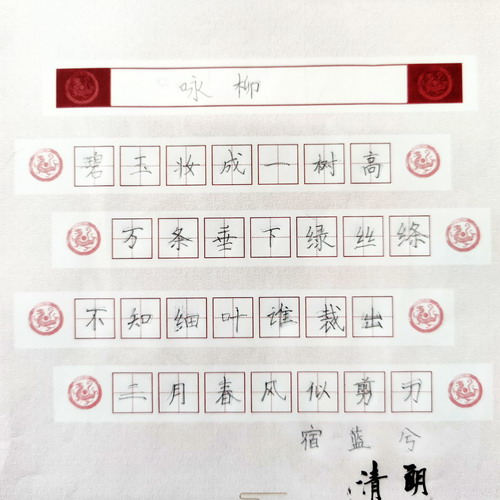 咏柳
碧玉妆成一树高
万条垂下绿丝绦
不知细叶谁裁出
二月春风似剪刀
宿蓝兮
清朗